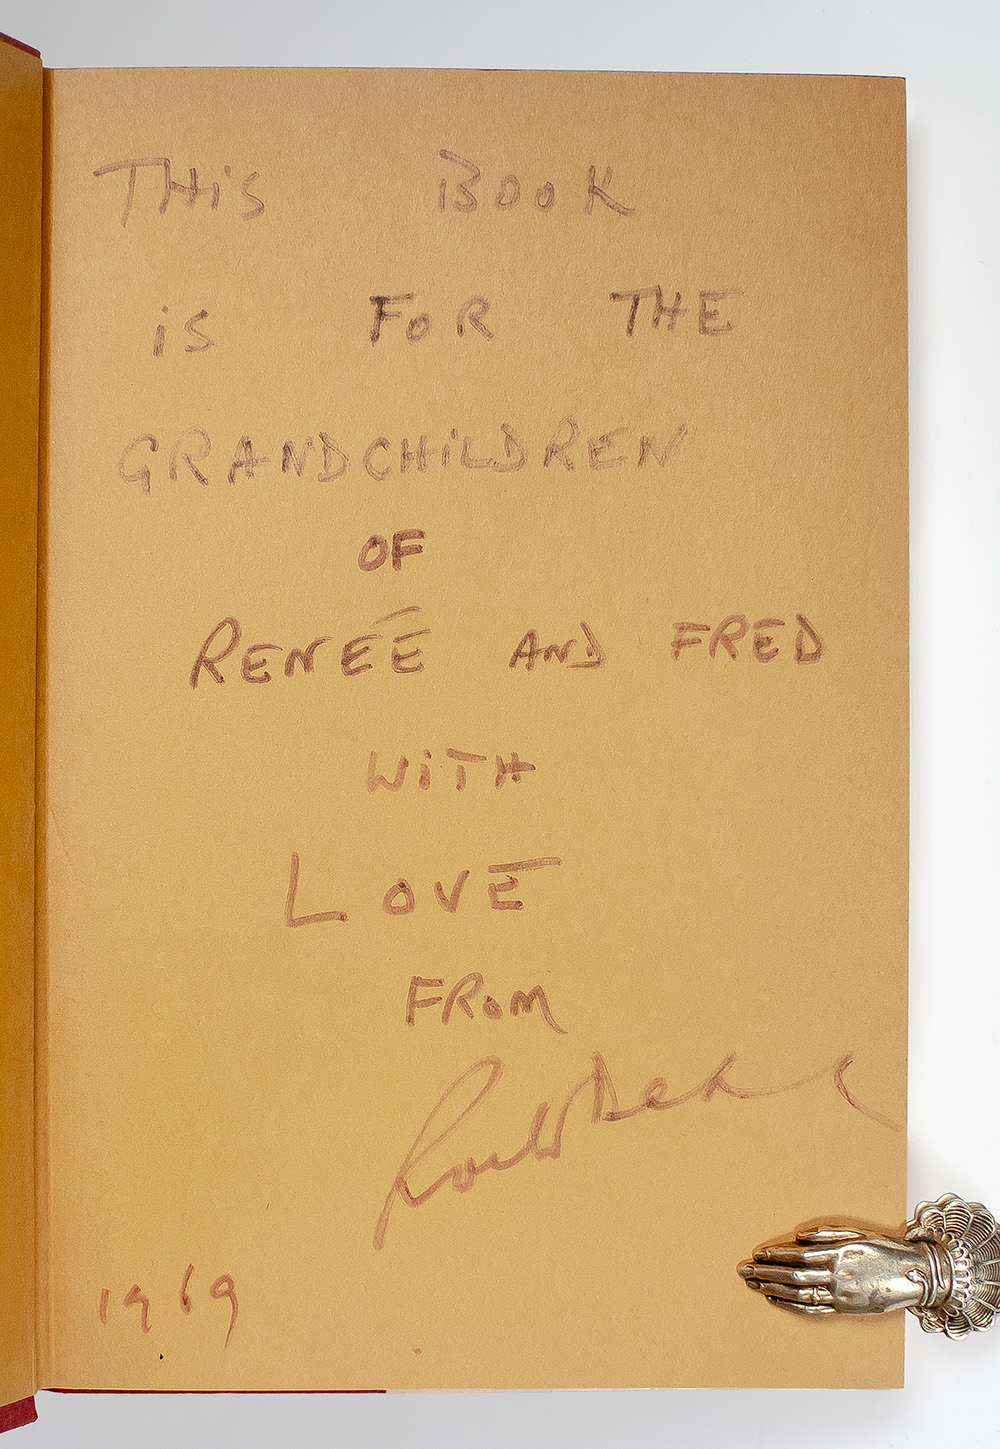 THiS BOOK
iS FOR THE
GRANDCHiLDREN
OF
RENÉE AND FRED
WiTH
LOVE
FROM
Roald Dahl
1969